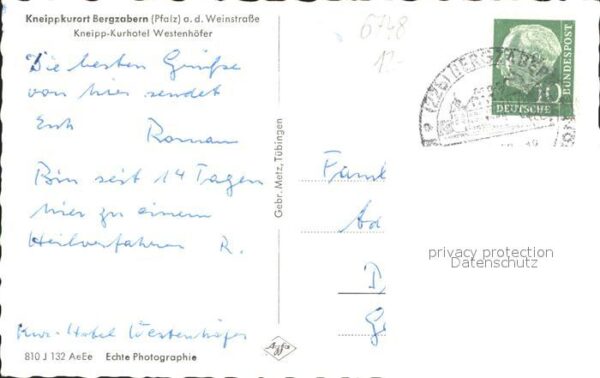 Kneippkurort Bergzabern (Pfalz) a. d. Weinstraße
Kneipp-Kurhotel Westenhöfer
6748
12.-
(22b) BERGZABERN
10
DEUTSCHE
BUNDESPOST
Die besten Grüße
von hier sendet
Euch Roman
Bin seit 14 Tagen
hier zu einem
Heilverfahren R.
Kur-Hotel Westenhöfer
Gebr. Metz, Tübingen
Fam
Ad
D
Ge
privacy protection
Datenschutz
810 J 132 AeEe Echte Photographie
Agfa